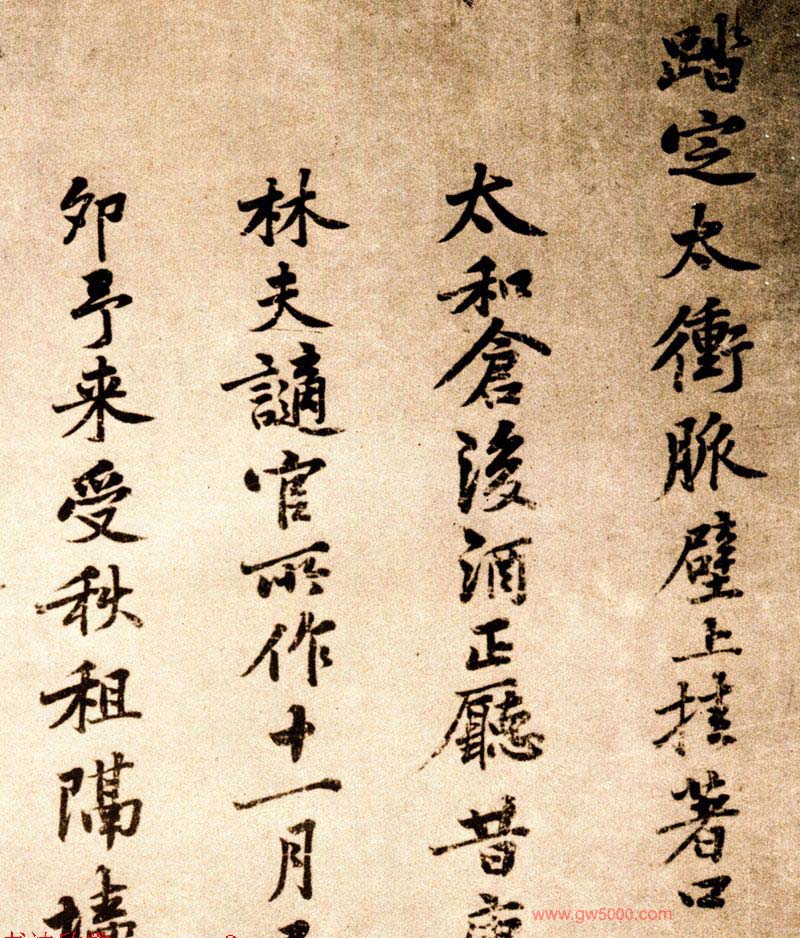 踏定太衝脈壁上挂著口
太和倉浚酒正廳昔
林夫謫官所作十一月
卯予来受秋租隔
www.gw5000.com